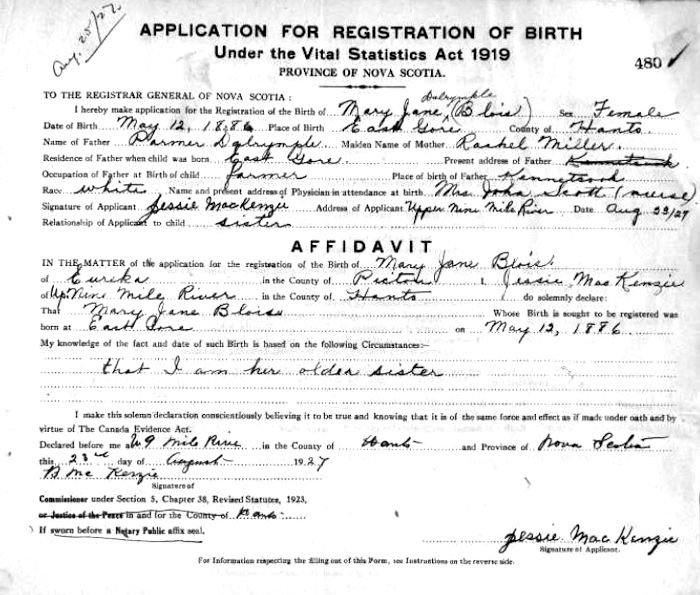 Aug. 25/27.
APPLICATION FOR REGISTRATION OF BIRTH
Under the Vital Statistics Act 1919
PROVINCE OF NOVA SCOTIA.
480
TO THE REGISTRAR GENERAL OF NOVA SCOTIA:
Dalrymple
I hereby make application for the Registration of the Birth of Mary Jane (Blois) Sex Female
Date of Birth May 12, 1886 Place of Birth East Gore County of Hants
Name of Father Parmer Dalrymple Maiden Name of Mother Rachel Miller.
Residence of Father when child was born East Gore Present address of Father Kennetcook
Occupation of Father at Birth of child farmer Place of birth of Father Kennetcook
Race white Name and present address of Physician in attendance at birth Mrs. John Scott (nurse)
Signature of Applicant Jessie MacKenzie Address of Applicant Upper Nine Mile River Date Aug 23/27
Relationship of Applicant to child sister
AFFIDAVIT
IN THE MATTER of the application for the registration of the Birth of Mary Jane Blois
of Eureka in the County of Pictou I, Jessie MacKenzie
of Up. Nine Mile River in the County of Hants do solemnly declare:
That Mary Jane Blois Whose Birth is sought to be registered was
born at East Gore on May 12, 1886
My knowledge of the fact and date of such Birth is based on the following Circumstances:—
that I am her older sister
I make this solemn declaration conscientiously believing it to be true and knowing that it is of the same force and effect as if made under oath and by
virtue of The Canada Evidence Act.
Declared before me at U 9 Mile River in the County of Hants and Province of Nova Scotia
this 23rd day of August 1927
Mc Kenzie
Signature of
Commissioner under Section 5, Chapter 38, Revised Statutes, 1923,
or Justice of the Peace in and for the County of Hants
If sworn before a Notary Public affix seal.
Jessie MacKenzie
Signature of Applicant.
For Information respecting the filling out of this Form, see Instructions on the reverse side.